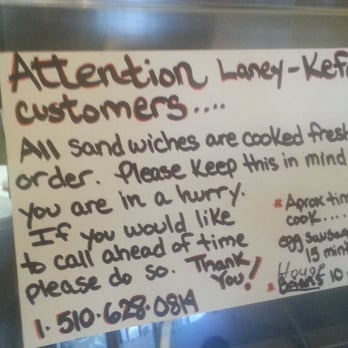 Attention Laney-Kef
customers....
All sandwiches are cooked fresh
order. Please keep this in mind
you are in a hurry.
If you would like
to call ahead of time
please do so. Thank
You!
1-510-628-0814
* Aprox tim
cook....
egg Sausag
15 mint
House
* Beans 10